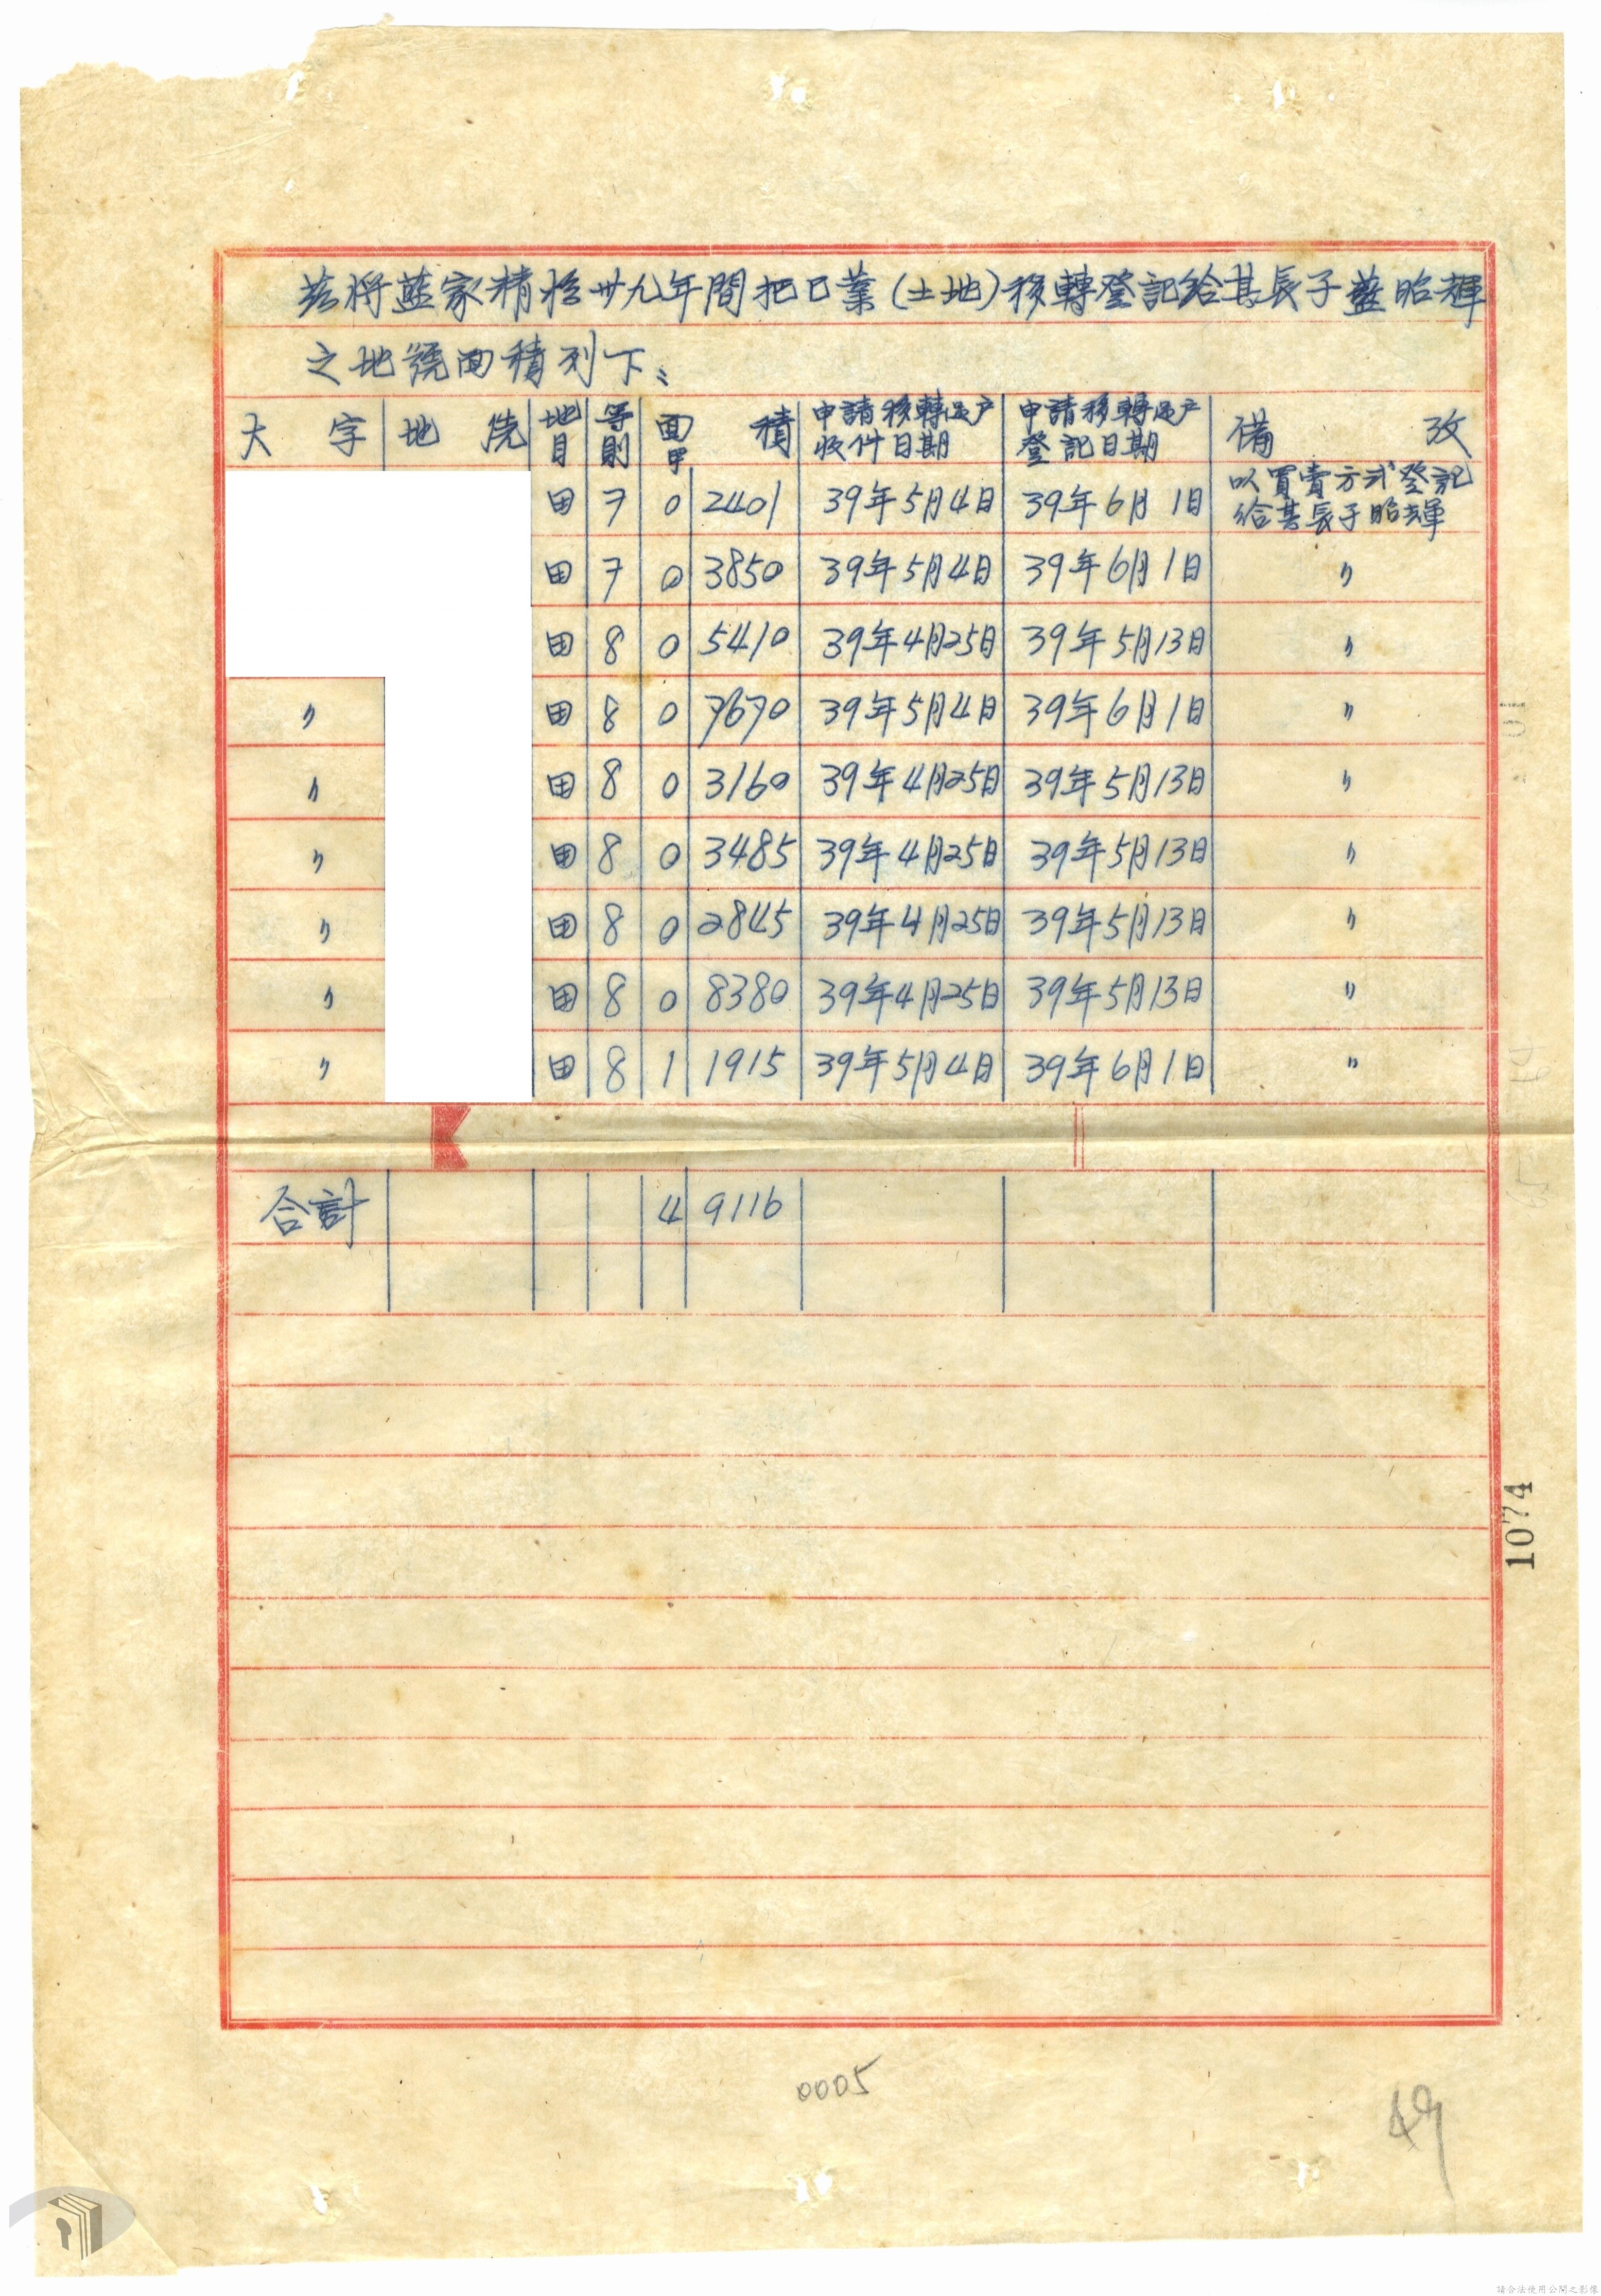 茲將藍家精於卅九年間把已業(土地)移轉登記給其長子藍昭輝
之地號面積列下:
大字 地號 地目 等則 面積 甲 申請移轉過戶收件日期 申請移轉過戶登記日期 備攷
田 7 0 2401 39年5月4日 39年6月1日 以買賣方式登記給其長子昭輝
田 7 0 3850 39年5月4日 39年6月1日 〃
田 8 0 5410 39年4月25日 39年5月13日 〃
〃 田 8 0 7670 39年5月4日 39年6月1日 〃
〃 田 8 0 3160 39年4月25日 39年5月13日 〃
〃 田 8 0 3485 39年4月25日 39年5月13日 〃
〃 田 8 0 2845 39年4月25日 39年5月13日 〃
〃 田 8 0 8380 39年4月25日 39年5月13日 〃
〃 田 8 1 1915 39年5月4日 39年6月1日 〃
合計 4 9116
1074
0005
49
請合法使用公開之影像